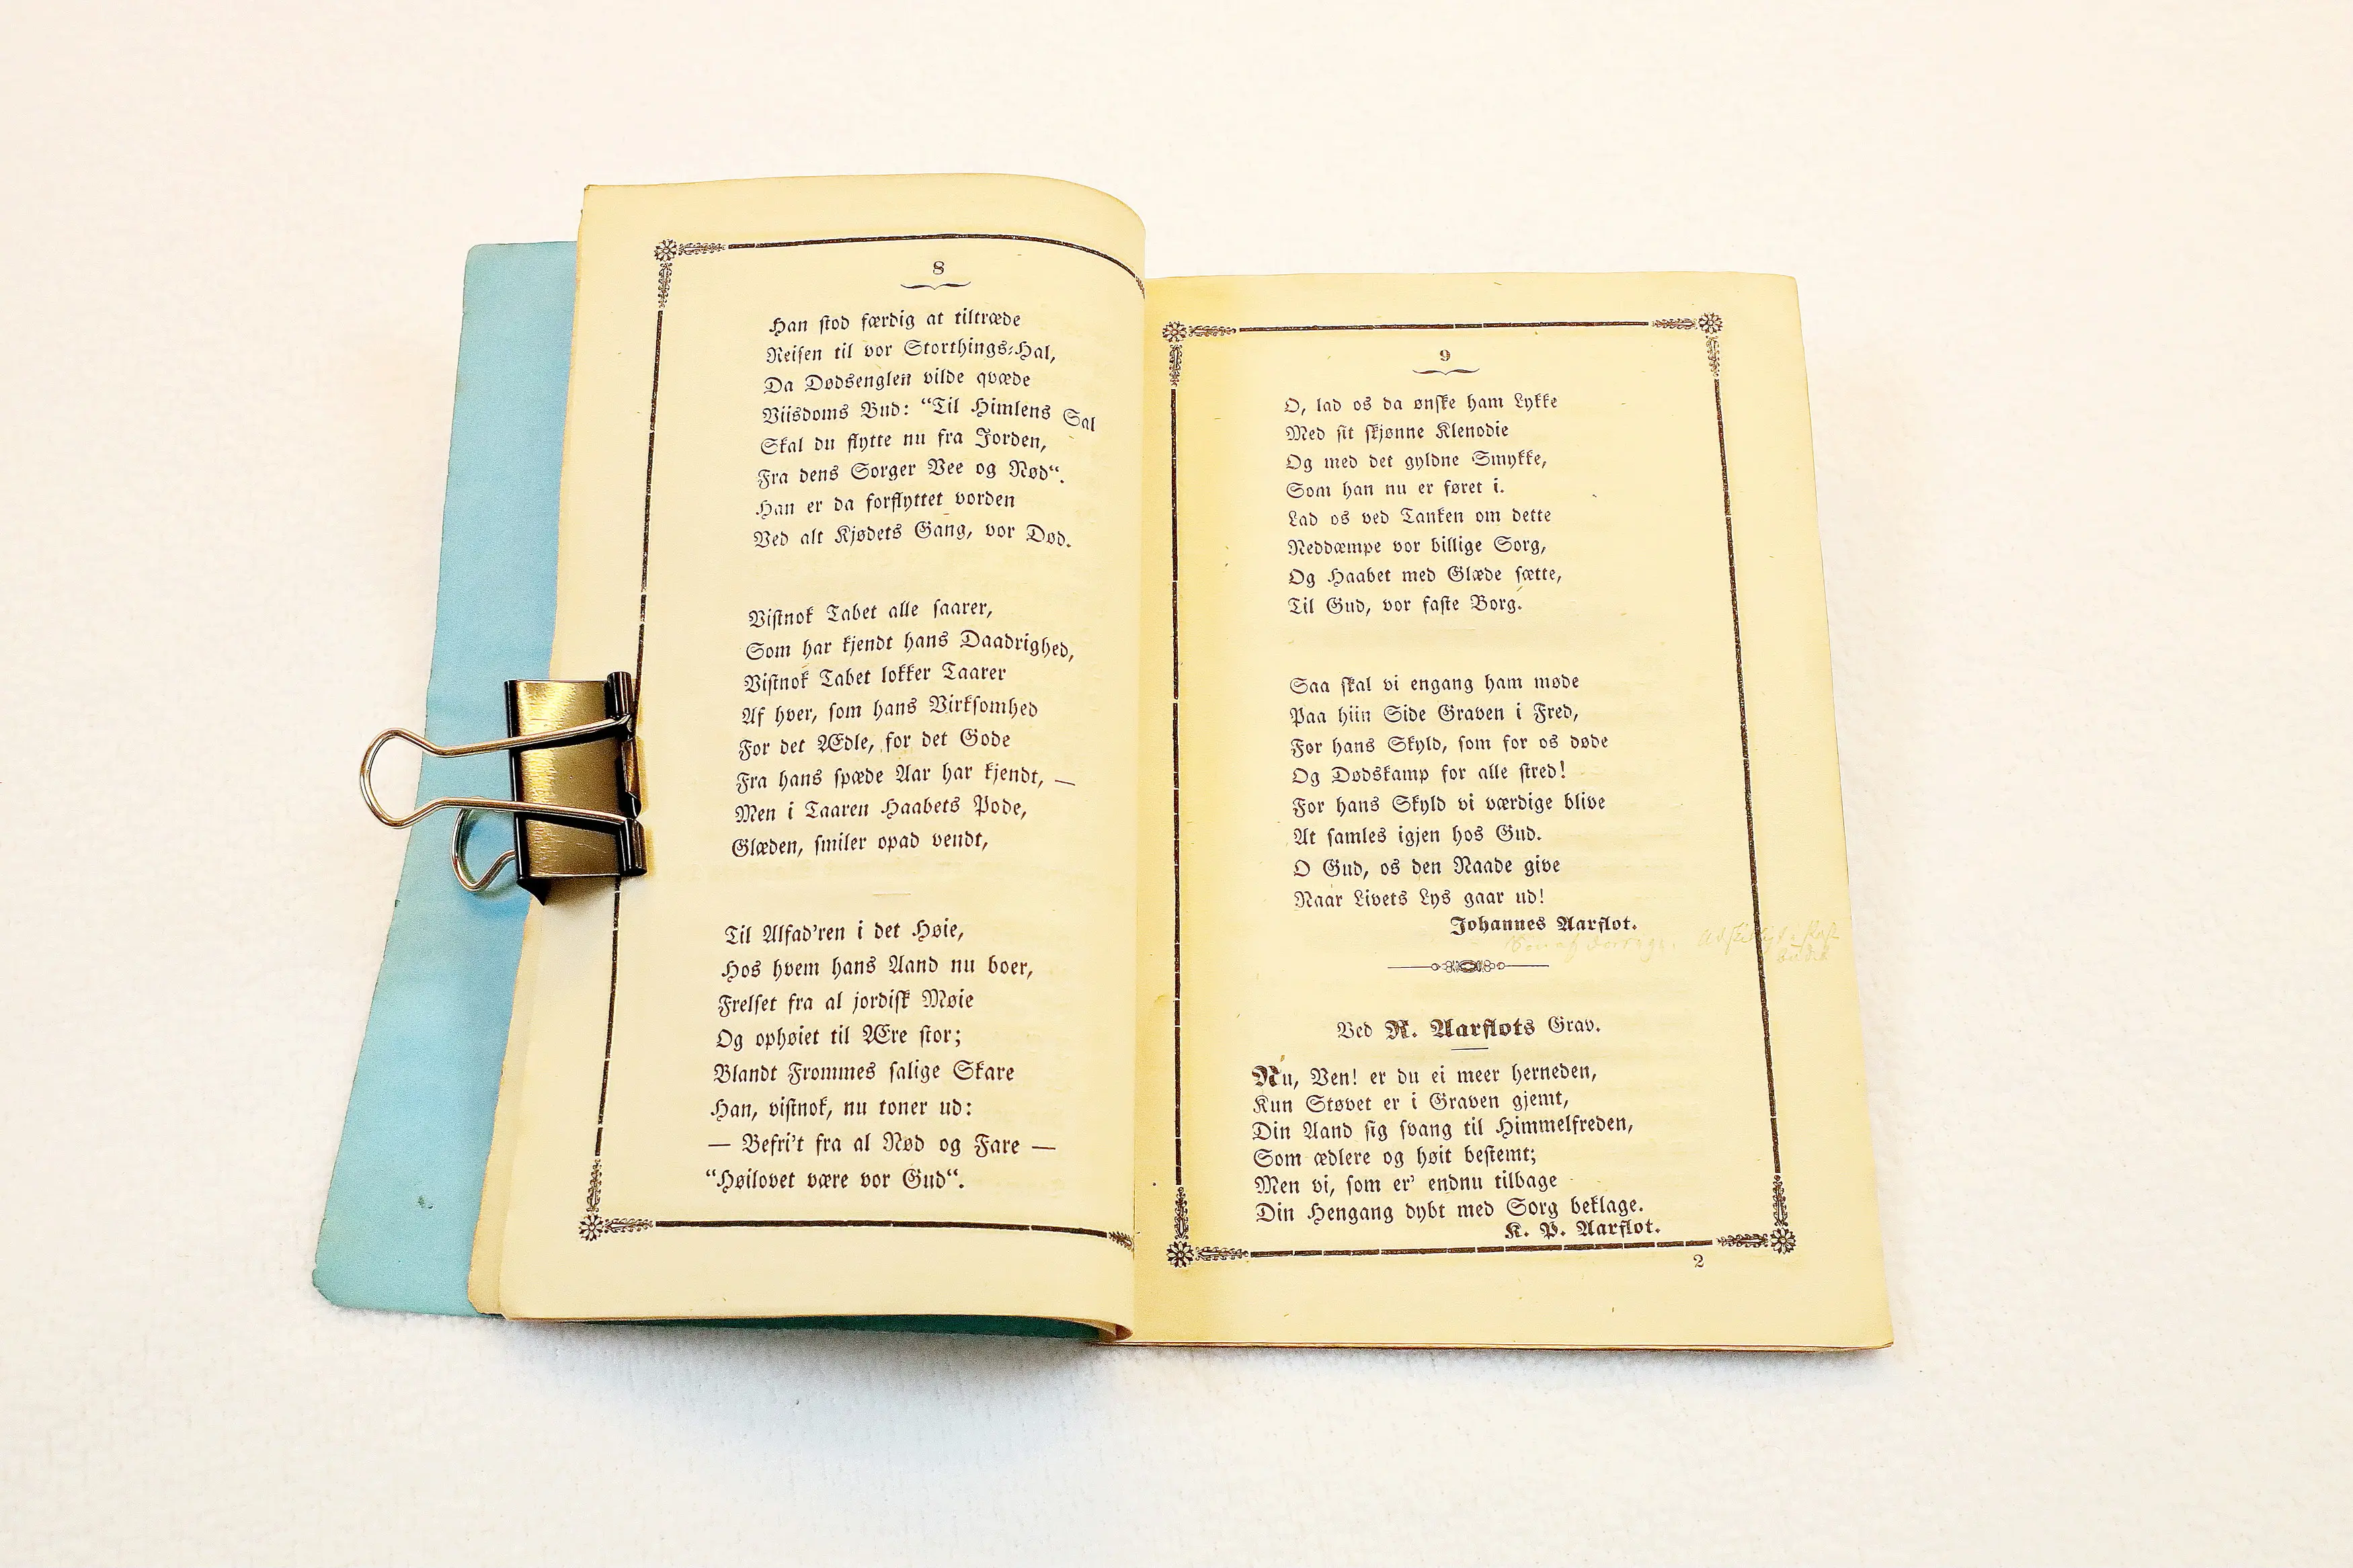 8
Han stod færdig at tiltræde
Reisen til vor Storthings-Hal,
Da Dødsenglen vilde qvæde
Viisdoms Bud: “Til Himlens Sal
Skal du flytte nu fra Jorden,
Fra dens Sorger Vee og Nød“.
Han er da forflyttet vorden
Ved alt Kjødets Gang, vor Død.
Vistnok Tabet alle saarer,
Som har kjendt hans Daadrighed,
Vistnok Tabet lokker Taarer
Af hver, som hans Virksomhed
For det Ædle, for det Gode
Fra hans spæde Aar har kjendt, —
Men i Taaren Haabets Pode,
Glæden, smiler opad vendt,
Til Alfad'ren i det Høie,
Hos hvem hans Aand nu boer,
Frelset fra al jordisk Møie
Og ophøiet til Ære stor;
Blandt Frommes salige Skare
Han, vistnok, nu toner ud:
— Befri't fra al Nød og Fare —
“Høilovet være vor Gud“.
9
O, lad os da ønske ham Lykke
Med sit skjønne Klenodie
Og med det gyldne Smykke,
Som han nu er føret i.
Lad os ved Tanken om dette
Neddæmpe vor billige Sorg,
Og Haabet med Glæde sætte,
Til Gud, vor faste Borg.
Saa skal vi engang ham møde
Paa hiin Side Graven i Fred,
For hans Skyld, som for os døde
Og Dødskamp for alle stred!
For hans Skyld vi værdige blive
At samles igjen hos Gud.
O Gud, os den Naade give
Naar Livets Lys gaar ud!
Johannes Aarflot.
Ved R. Aarflots Grav.
Nu, Ven! er du ei meer herneden,
Kun Støvet er i Graven gjemt,
Din Aand sig svang til Himmelfreden,
Som ædlere og høit bestemt;
Men vi, som er' endnu tilbage
Din Hengang dybt med Sorg beklage.
K. P. Aarflot.
2